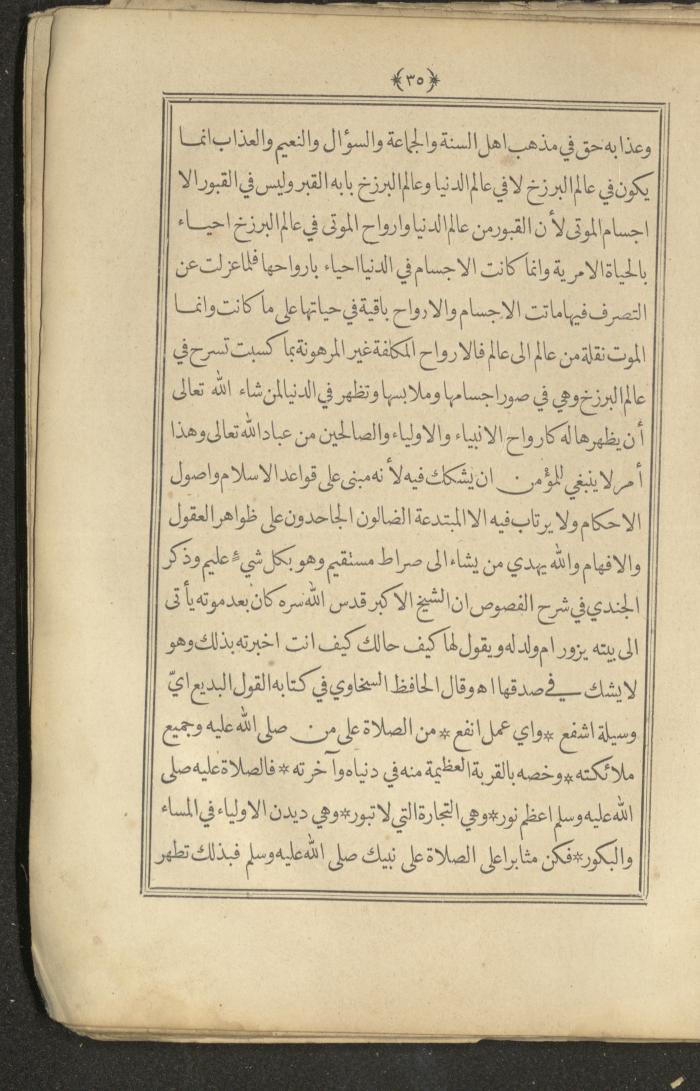 ٣٥
وعذابه حق في مذهب اهل السنة والجماعة والسؤال والنعيم والعذاب انما
يكون في عالم البرزخ لا في عالم الدنيا وعالم البرزخ بابه القبر وليس في القبور الا
اجسام الموتى لأن القبور من عالم الدنيا وارواح الموتى في عالم البرزخ احياء
بالحياة الامرية وانما كانت الاجسام في الدنيا احياء بارواحها فلما عزلت عن
التصرف فيها ماتت الاجسام والارواح باقية في حياتها على ما كانت وانما
الموت نقلة من عالم الى عالم فالارواح المكلفة غير المرهونة بما كسبت تسرح في
عالم البرزخ وهي في صور اجسامها وملابسها وتظهر في الدنيا لمن شاء الله تعالى
أن يظهرها له كارواح الانبياء والاولياء والصالحين من عباد الله تعالى وهذا
أمر لا ينبغي للمؤمن ان يشكك فيه لأنه مبنى على قواعد الاسلام واصول
الاحكام ولا يرتاب فيه الا المبتدعة الضالون الجاحدون على ظواهر العقول
والافهام والله يهدي من يشاء الى صراط مستقيم وهو بكل شيء عليم وذكر
الجندي في شرح الفصوص ان الشيخ الاكبر قدس الله سره كان بعد موته يأتى
الى بيته يزور ام ولد له ويقول لها كيف حالك كيف انت اخبرته بذلك وهو
لا يشك في صدقها اه وقال الحافظ السخاوي في كتابه القول البديع ايّ
وسيلة اشفع * واي عمل انفع * من الصلاة على من صلى الله عليه وجميع
ملائكته * وخصه بالقربة العظيمة منه في دنياه وآخرته * فالصلاة عليه صلى
الله عليه وسلم اعظم نور * وهي التجارة التي لا تبور * وهي ديدن الاولياء في المساء
والبكور * فكن مثابرا على الصلاة على نبيك صلى الله عليه وسلم فبذلك تطهر